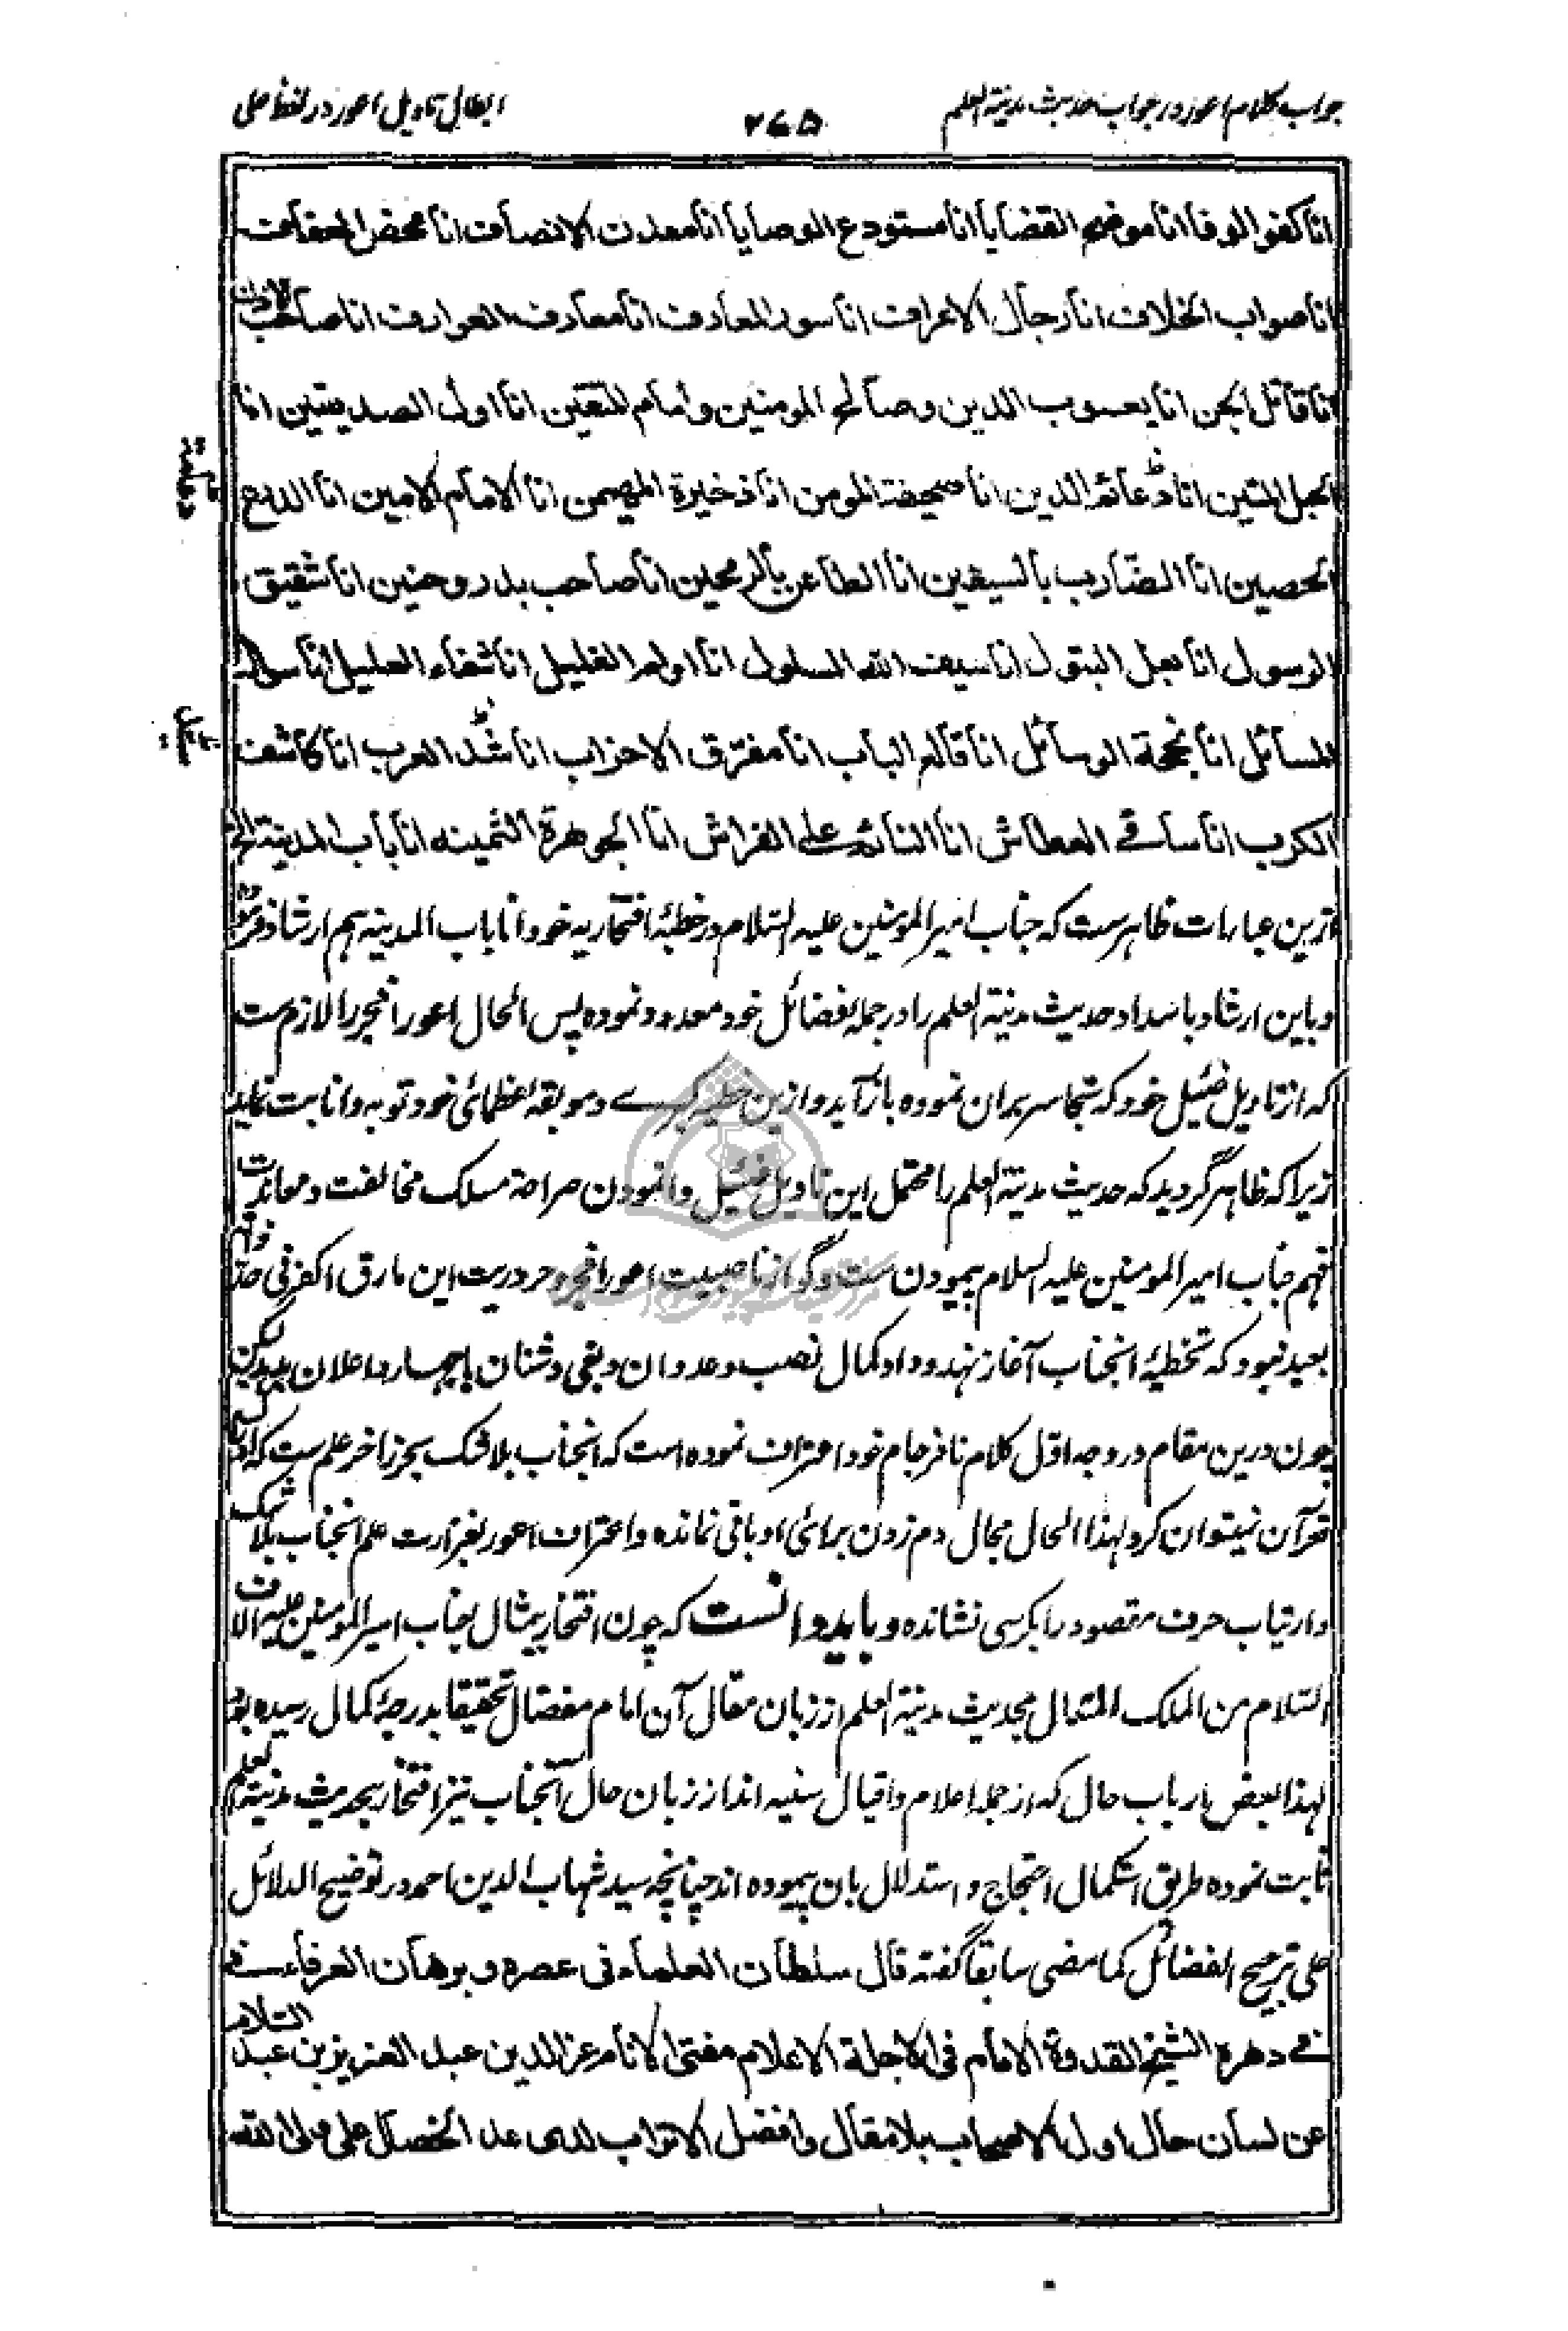 جواب کلام اعور در جواب حدیث مدینة العلم
۲۶۵
ابطال تاویل اعور در لفظ علی
انا کفو الوفا انا موضح القضایا انا مستودع الوصایا انا معدن الانصاف انا محض العفاف
انا صواب الخلاف انا رجال الاعراف انا سور المعارف انا معارف العوارف انا صاحب الاذن
انا قاتل الجن انا یعسوب الدین وصالح المومنین وامام المتقین انا اول الصدیقین انا
الحبل المتین انا دعائم الدین انا صحیفة المومن انا ذخیرة المهیمن انا الامام الامین انا الدرع
الحصین انا الضارب بالسیفین انا الطاعن بالرمحین انا صاحب بدر وحنین انا شقیق
الرسول انا بعل البتول انا سیف الله المسلول انا اوام الغلیل انا شفاء العلیل انا سوال
المسائل انا نجحة الوسائل انا قالع الباب انا مفرق الاحزاب انا سید العرب انا کاشف
الکرب انا ساقی العطاش انا النائم علی الفراش انا الجوهرة الثمینه انا باب المدینة الخ
ازین عبارات ظاهرست که جناب امیر المومنین علیه السلام در خطبهٔ افتخاریه خود انا باب المدینه هم ارشاد فرموده
و باین ارشاد باسداد حدیث مدینة العلم را در جمله فضائل خود معدود نموده پس الحال اعور افجر را لازم ست
که از تاویل ضئیل خود که تجاسر بران نموده باز آید و ازین خطیه کبرے و موبقه عظمائی خود توبه و انابت نماید
زیرا که ظاهر گردید که حدیث مدینة العلم را محتمل این تاویل ضئیل وانمودن صراحة مسلک مخالفت و معاندت
فهم جناب امیر المومنین علیه السلام پیمودن ست وگو از ناصبیت اعور افجر و حروریت این مارق اکفر فی حد ذاتهم
بعید نبود که تخطیهٔ انجناب آغاز نهد و داد کمال نصب و عدوان و بغی و شنان باجهار و اعلان بدهد لیکن
چون درین مقام در وجه اول کلام نافرجام خود اعتراف نموده است که انجناب بلا شک بحر زاخر علم ست که ادراک
قرآن نمیتوان کرد لهذا الحال مجال دم زدن برای او باقی نمانده و اعتراف اعور بغزارت علم انجناب بلا شک
و ارتیاب حرف مقصود را بکرسی نشانده و باید دانست که چون افتخار بیمثال جناب امیر المومنین علیه آلاف
السلام من الملک المتعال بحدیث مدینة العلم از زبان مقال آن امام مفضال تحقیقا بدرجهٔ کمال رسیده بود
لهذا بعض ارباب حال که از جمله اعلام و اقیال سنیه اند از زبان حال آنجناب نیز افتخار بحدیث مدینة العلم
ثابت نموده طریق استکمال احتجاج و استدلال بان پیموده اند چنانچه سید شهاب الدین احمد در توضیح الدلائل
علی ترجیح الفضائل کما مضی سابقا گفته قال سلطان العلماء فی عصره و برهان العرفاء
فی دهره الشیخ القدوة الامام فی الاجلة الاعلام مفتی الانام عز الدین عبد العزیز بن عبد السلام
عن لسان حال اول الاصحاب بلا مقال وافضل الاتراب لدی عد الخصال علی ولی الله